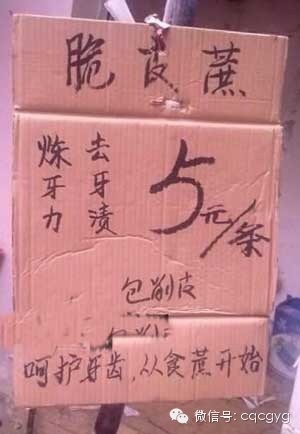 脆皮蔗
去牙渍
炼牙力
5元/条
包削皮
呵护牙齿,从食蔗开始
微信号: cqcgyg